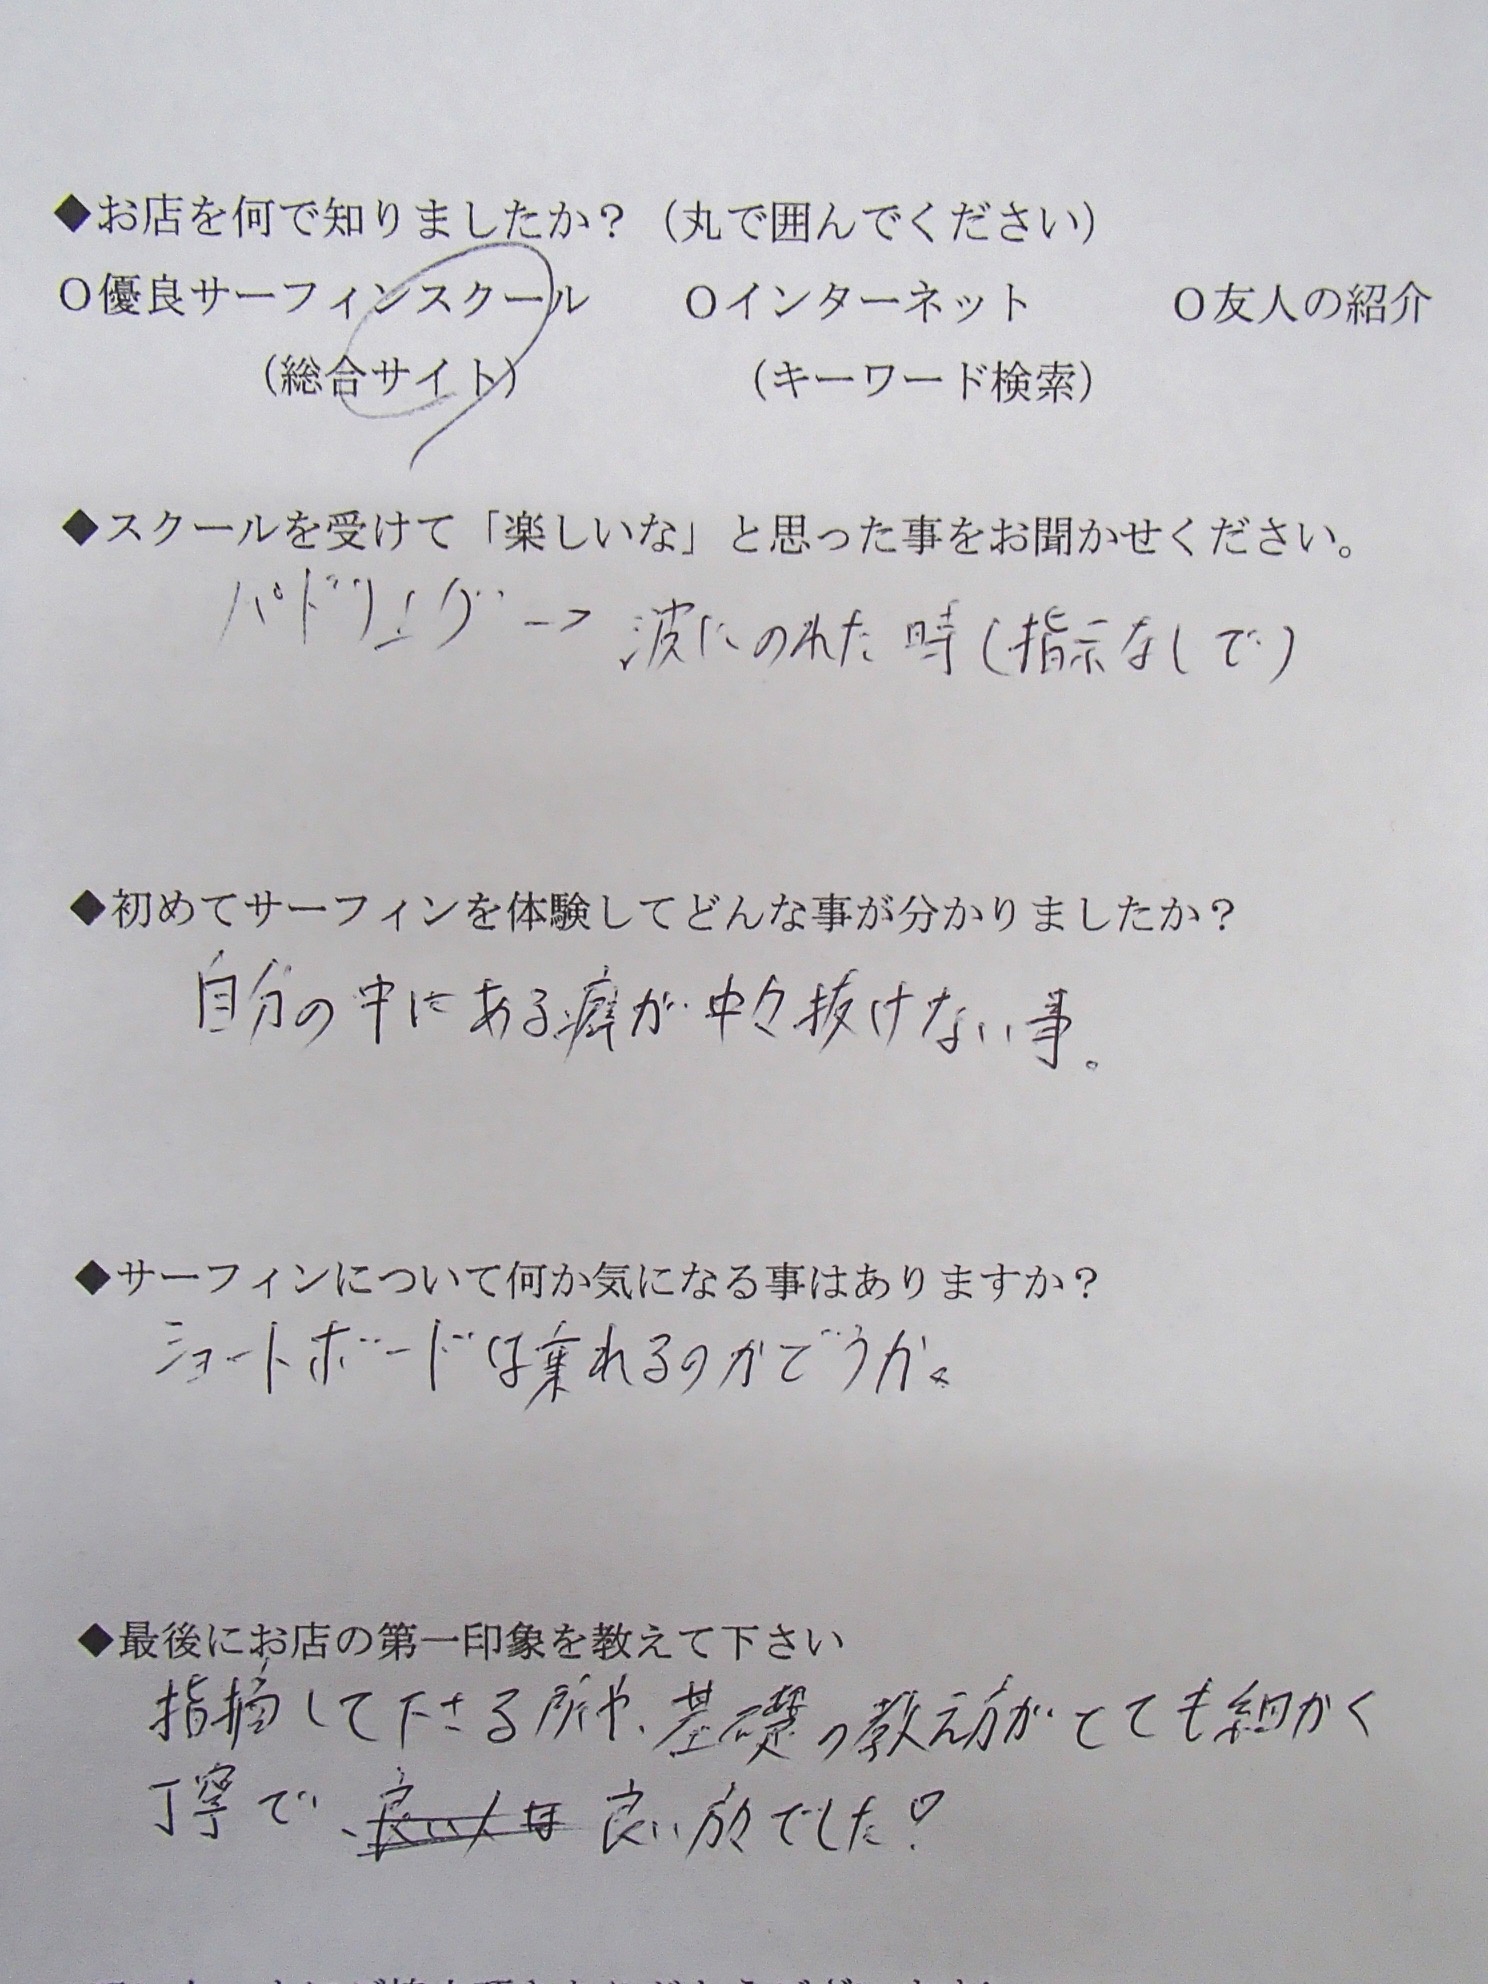 ◆お店を何で知りましたか？（丸で囲んでください）
○優良サーフィンスクール　○インターネット　○友人の紹介
（総合サイト）　（キーワード検索）
◆スクールを受けて「楽しいな」と思った事をお聞かせください。
パドリング→波にのれた時（指示なしで）
◆初めてサーフィンを体験してどんな事が分かりましたか？
自分の中にある癖が中々抜けない事。
◆サーフィンについて何か気になる事はありますか？
ショートボードは乗れるのかどうか。
◆最後にお店の第一印象を教えて下さい
指摘して下さる所や、基礎の教え方がとても細かく
丁寧で、良い人な 良い方々でした♡